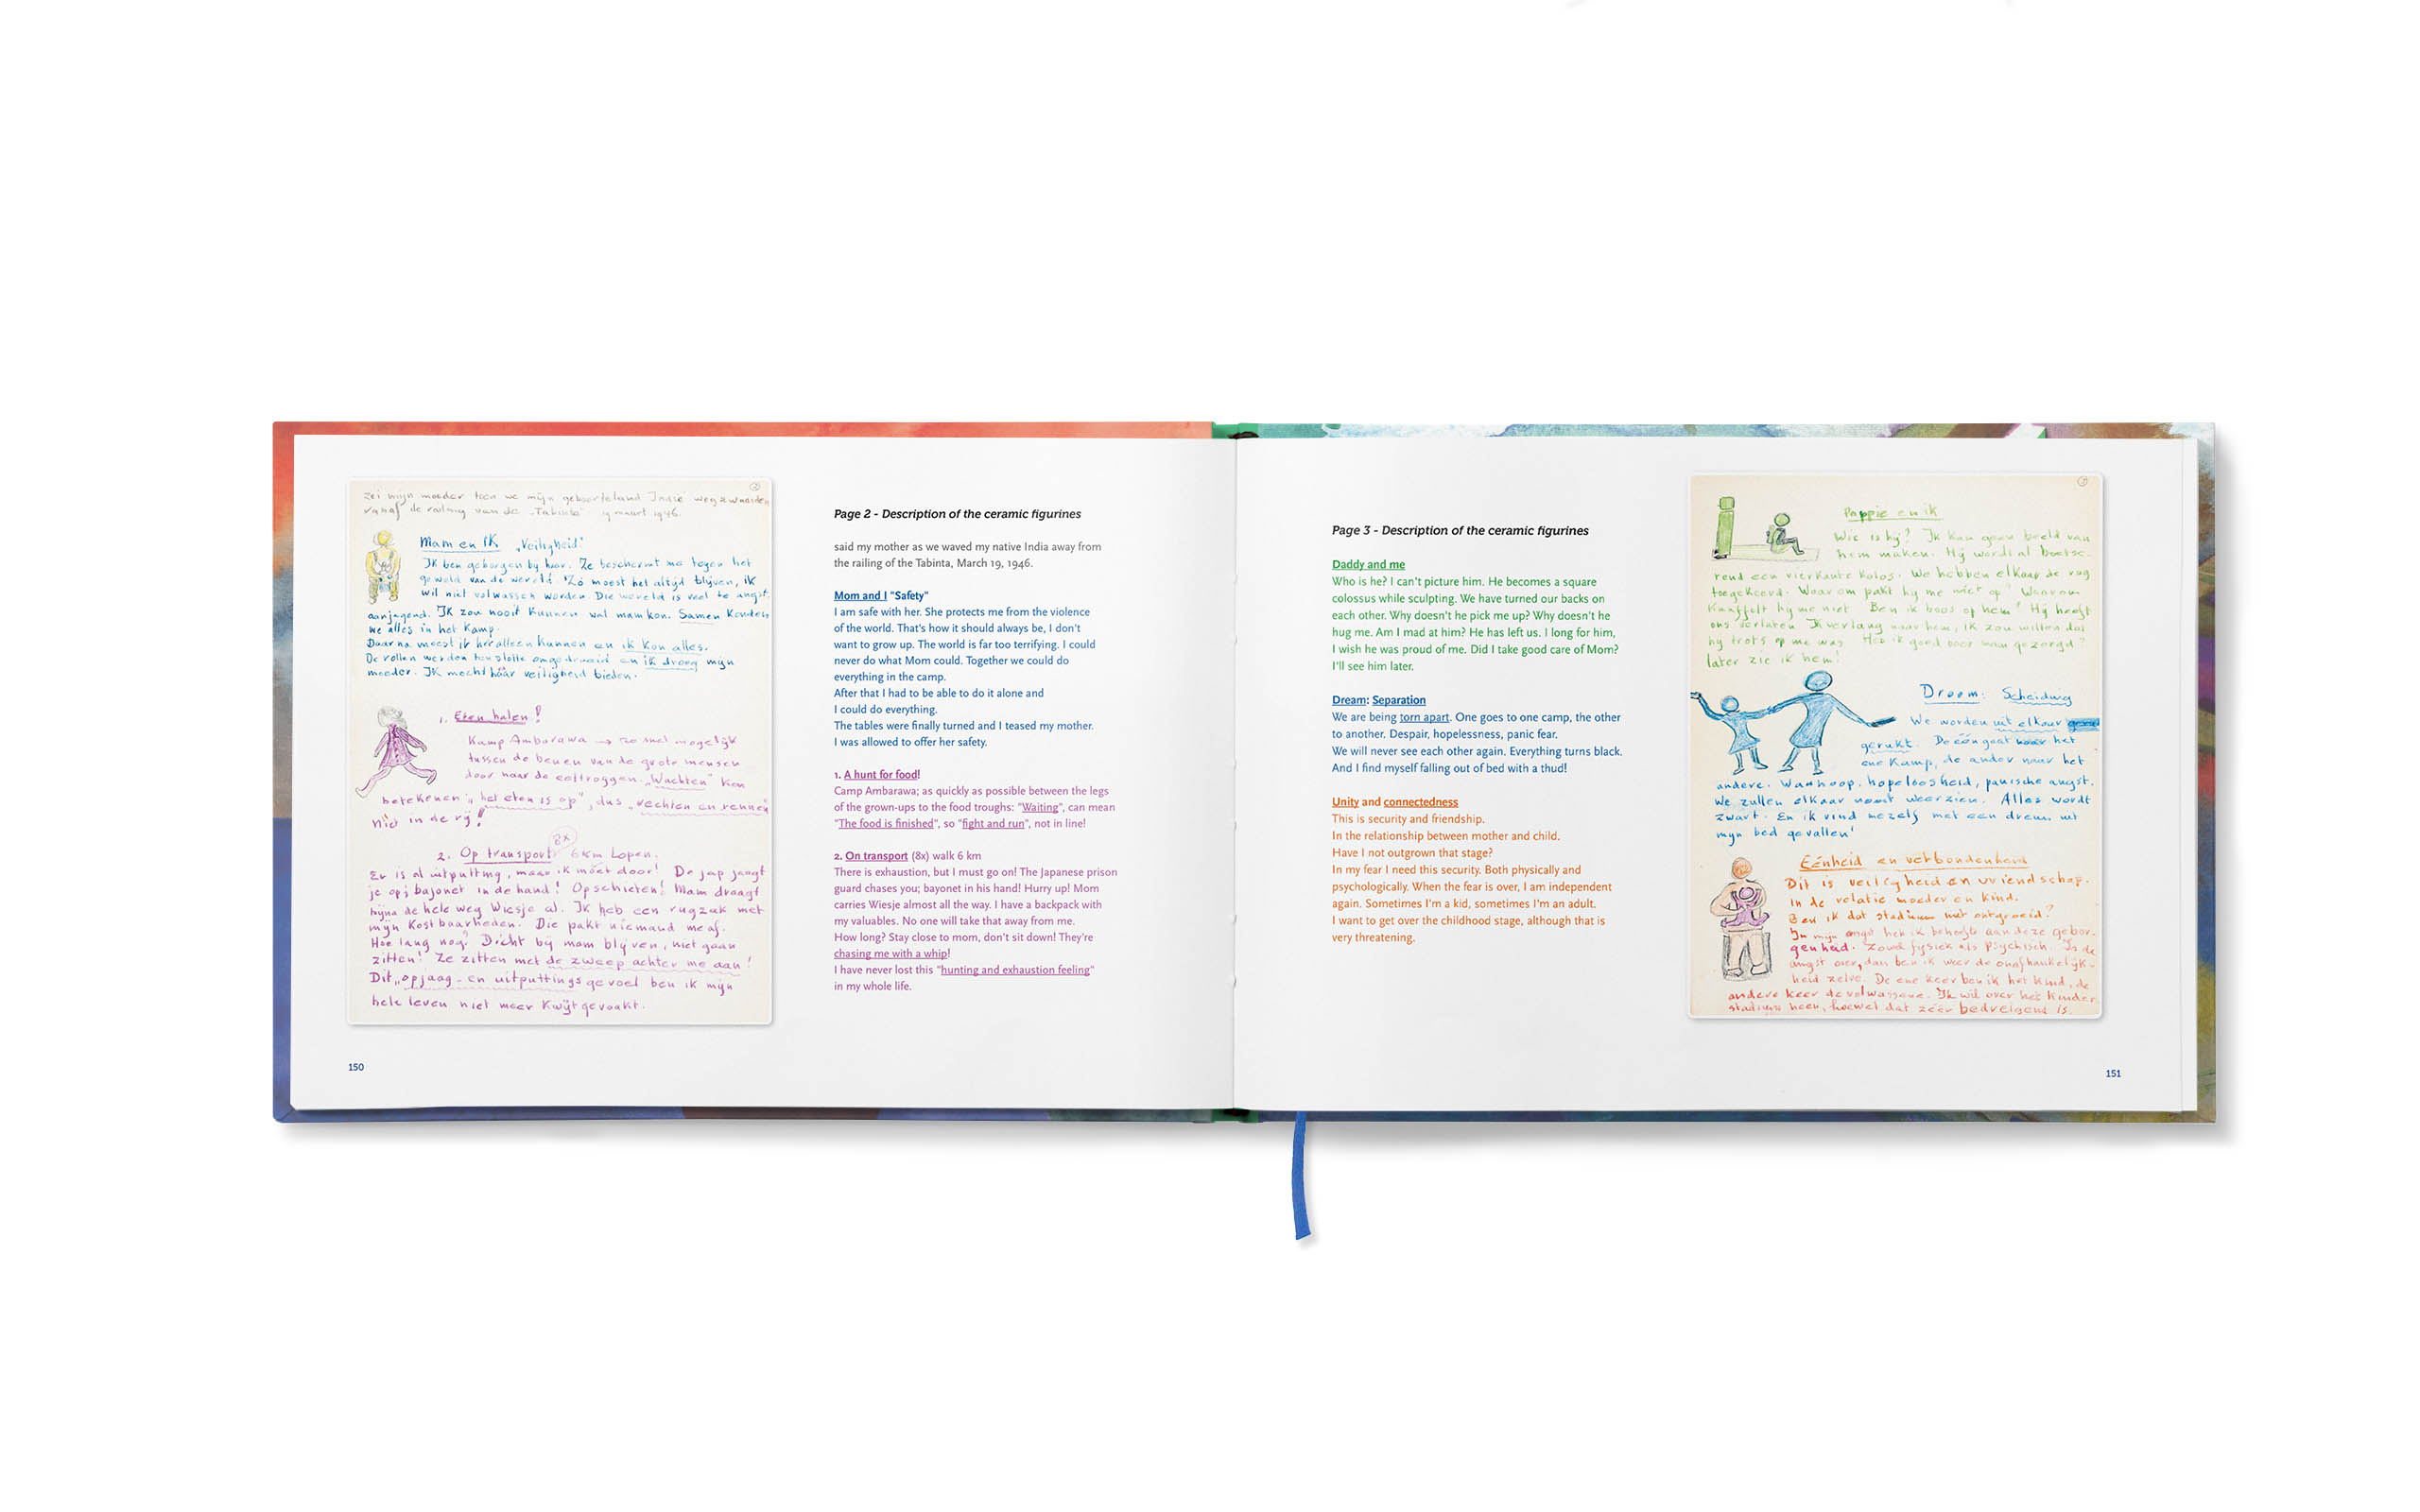 2
zei mijn moeder toen we mijn geboorteland Indië wegzwaaiden
vanaf de railing van de „Tabinta" 19 maart 1946.
Mam en ik „Veiligheid"
Ik ben geborgen bij haar. Ze beschermt me tegen het
geweld van de wereld. Zó moest het altijd blijven, ik
wil niet volwassen worden. Die wereld is veel te angst-
aanjagend. Ik zou nooit kunnen wat mam kon. Samen konden
we alles in het kamp.
Daarna moest ik het alleen kunnen en ik kon alles.
De rollen werden ten slotte omgedraaid en ik droeg mijn
moeder. Ik mocht háár veiligheid bieden.
1. Eten halen!
Kamp Ambarawa → zo snel mogelijk
tussen de benen van de grote mensen
door naar de eettroggen. „Wachten" kan
betekenen „het eten is op", dus „vechten en rennen"
niet in de rij!
8x
2. Op transport 6 km lopen.
Er is al uitputting, maar ik moet door! De jap jaagt
je op; bajonet in de hand! Opschieten! Mam draagt
bijna de hele weg Wiesje al. Ik heb een rugzak met
mijn kostbaarheden. Die pakt niemand me af.
Hoe lang nog? Dicht bij mam blijven, niet gaan
zitten! Ze zitten met de zweep achter me aan!
Dit „opjaag- en uitputtingsgevoel ben ik mijn
hele leven niet meer kwijtgeraakt.
Page 2 - Description of the ceramic figurines
said my mother as we waved my native India away from
the railing of the Tabinta, March 19, 1946.
Mom and I "Safety"
I am safe with her. She protects me from the violence
of the world. That's how it should always be, I don't
want to grow up. The world is far too terrifying. I could
never do what Mom could. Together we could do
everything in the camp.
After that I had to be able to do it alone and
I could do everything.
The tables were finally turned and I teased my mother.
I was allowed to offer her safety.
1. A hunt for food!
Camp Ambarawa; as quickly as possible between the legs
of the grown-ups to the food troughs: "Waiting", can mean
"The food is finished", so "fight and run", not in line!
2. On transport (8x) walk 6 km
There is exhaustion, but I must go on! The Japanese prison
guard chases you; bayonet in his hand! Hurry up! Mom
carries Wiesje almost all the way. I have a backpack with
my valuables. No one will take that away from me.
How long? Stay close to mom, don't sit down! They're
chasing me with a whip!
I have never lost this "hunting and exhaustion feeling"
in my whole life.
150
Page 3 - Description of the ceramic figurines
Daddy and me
Who is he? I can't picture him. He becomes a square
colossus while sculpting. We have turned our backs on
each other. Why doesn't he pick me up? Why doesn't he
hug me. Am I mad at him? He has left us. I long for him,
I wish he was proud of me. Did I take good care of Mom?
I'll see him later.
Dream: Separation
We are being torn apart. One goes to one camp, the other
to another. Despair, hopelessness, panic fear.
We will never see each other again. Everything turns black.
And I find myself falling out of bed with a thud!
Unity and connectedness
This is security and friendship.
In the relationship between mother and child.
Have I not outgrown that stage?
In my fear I need this security. Both physically and
psychologically. When the fear is over, I am independent
again. Sometimes I'm a kid, sometimes I'm an adult.
I want to get over the childhood stage, although that is
very threatening.
3
Pappie en ik
Wie is hij? Ik kan geen beeld van
hem maken. Hij wordt al boetse-
rend een vierkante kolos. We hebben elkaar de rug
toegekeerd. Waarom pakt hij me niet op? Waarom
knuffelt hij me niet. Ben ik boos op hem? Hij heeft
ons verlaten. Ik verlang naar hem, ik zou willen dat
hij trots op me was. Heb ik goed voor mam gezorgd?
later zie ik hem!
Droom: Scheiding
We worden uit elkaar
gerukt. De één gaat naar het
ene kamp, de ander naar het
andere. Wanhoop, hopeloosheid, panische angst.
We zullen elkaar nooit weerzien. Alles wordt
zwart. En ik vind mezelf met een dreun uit
mijn bed gevallen!
Eénheid en verbondenheid
Dit is veiligheid en vriendschap.
In de relatie moeder en kind.
Ben ik dat stadium niet ontgroeid?
In mijn angst heb ik behoefte aan deze gebor-
genheid. Zowel fysiek als psychisch. Is de
angst over, dan ben ik weer de onafhankelijk-
heid zelve. De ene keer ben ik het kind, de
andere keer de volwassene. Ik wil over het kinder-
stadium heen, hoewel dat zéér bedreigend is.
151